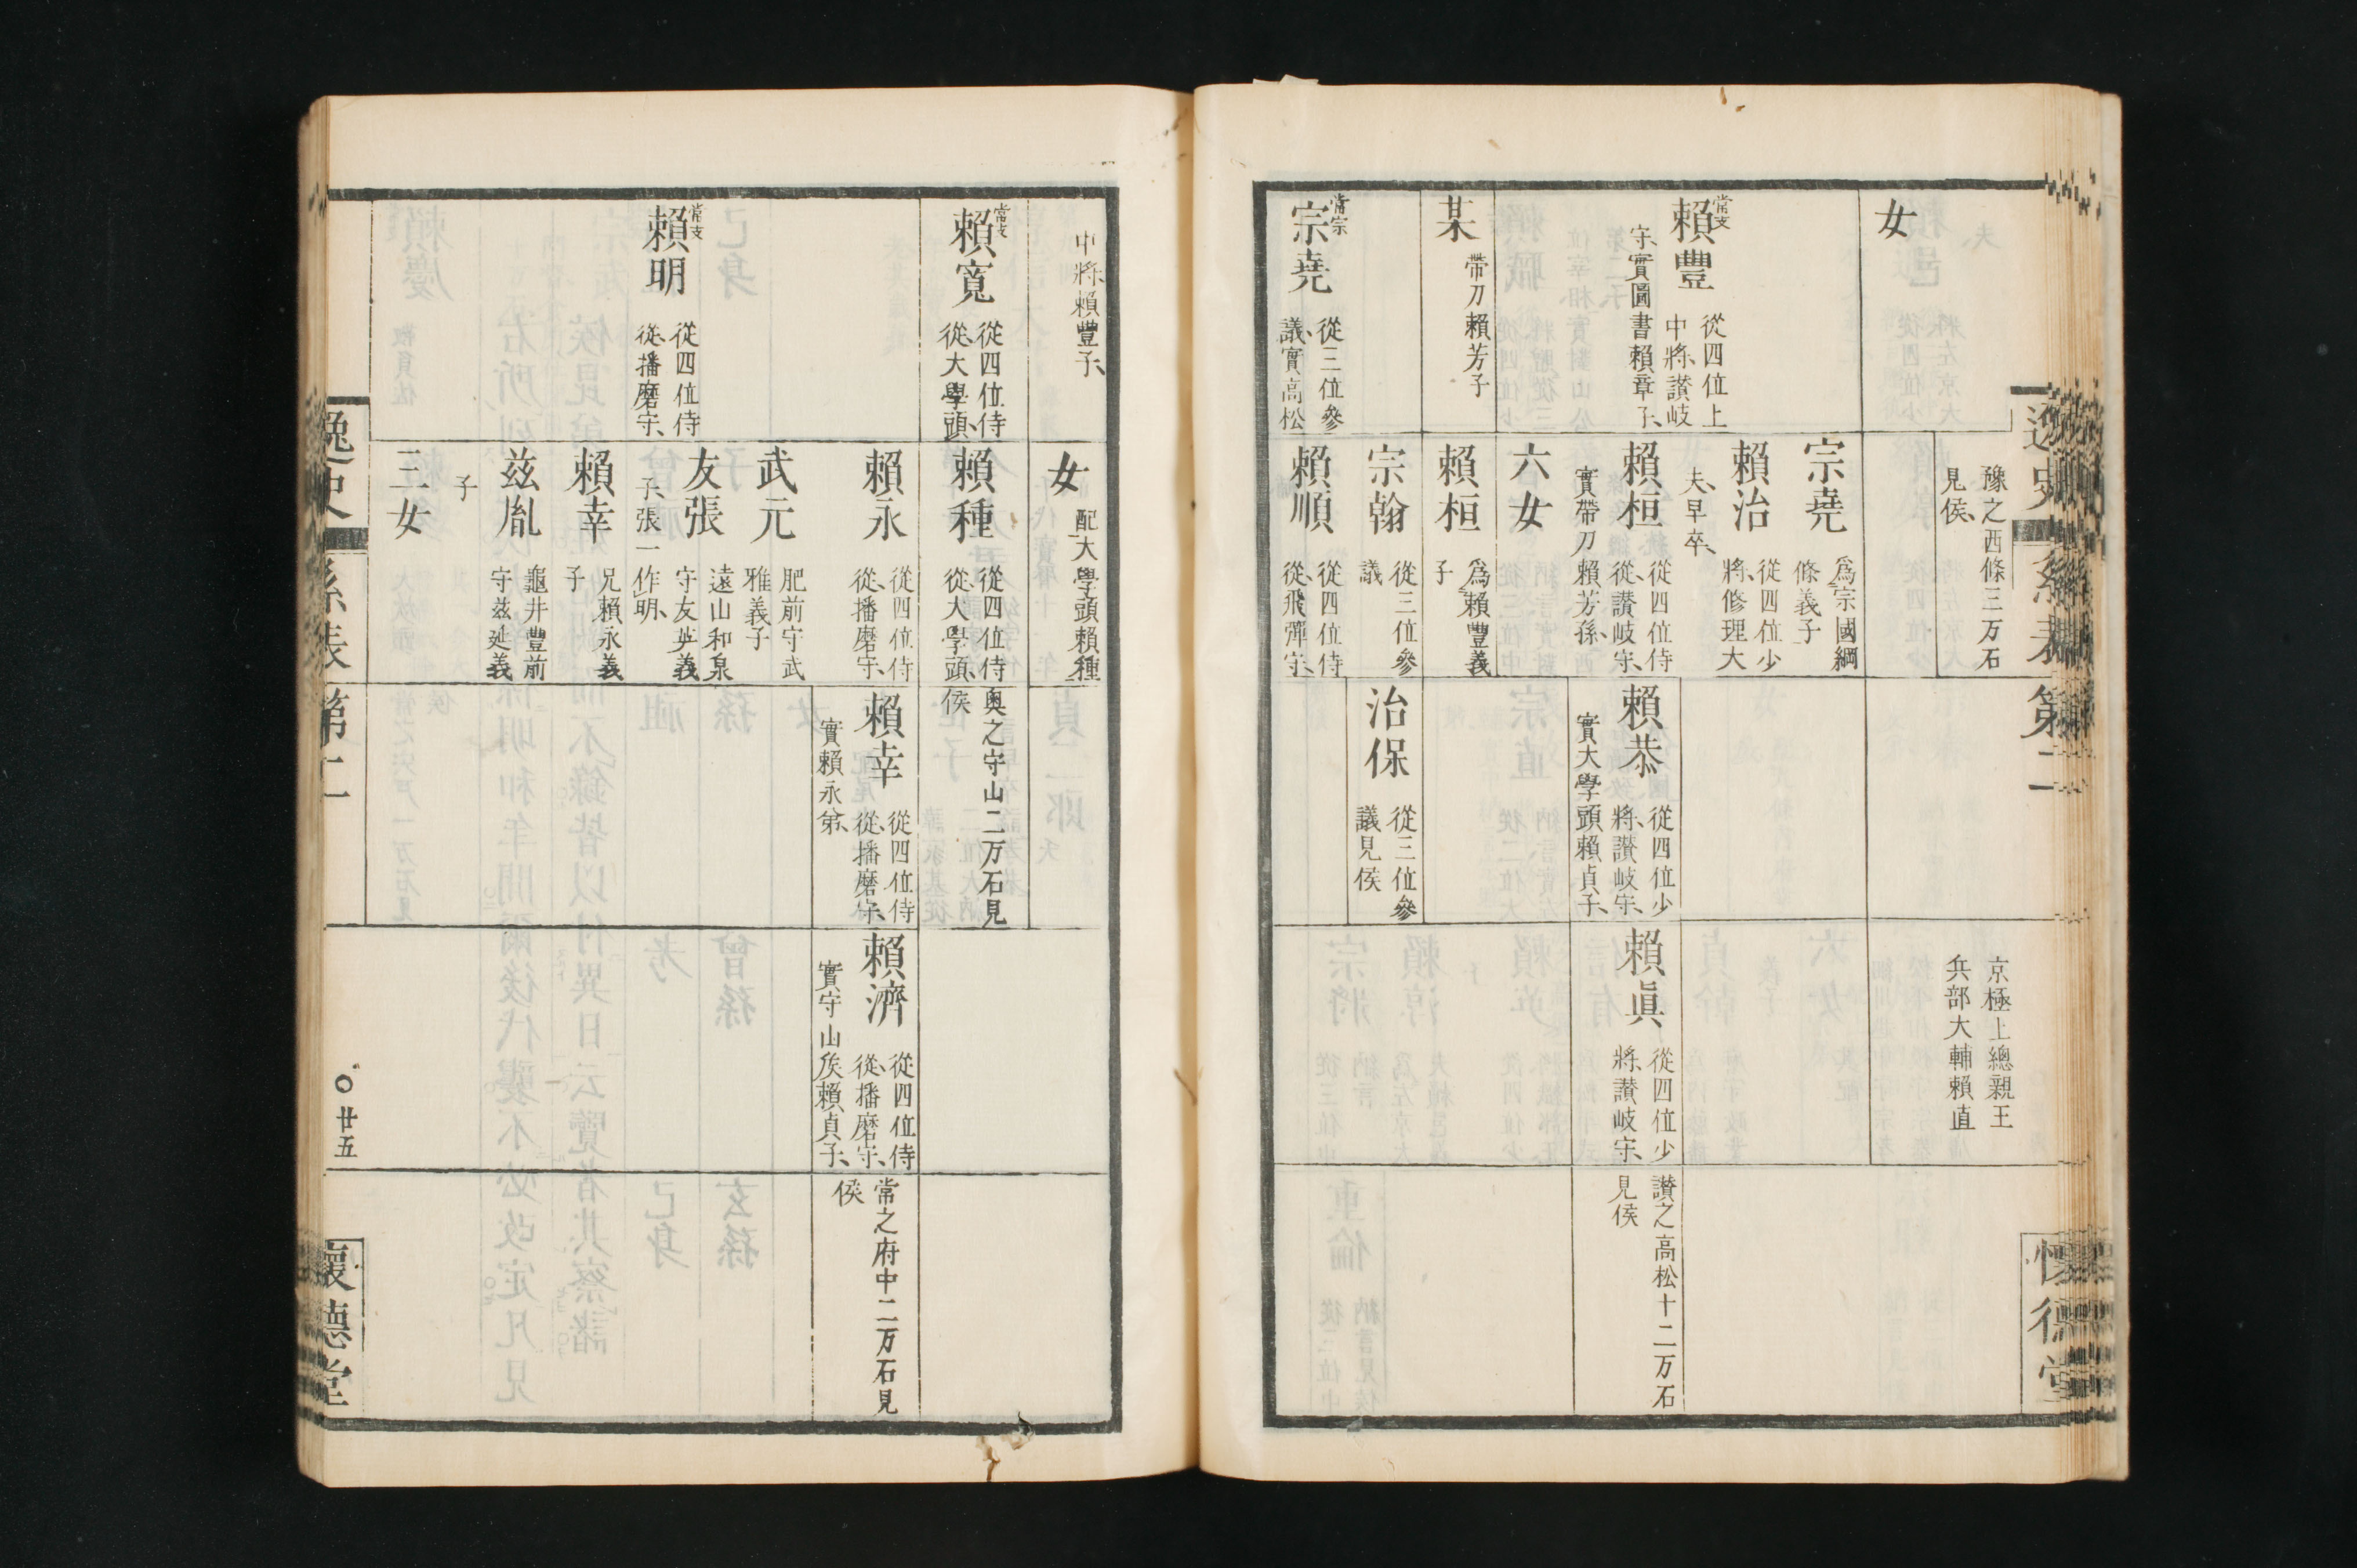 逸史
系表
第二
懷德堂
豫之西條三万石
見侯、
京極上總親王
兵部大輔賴直
女
常支
賴豐
從四位上
中將、讃岐
守、實圖書賴章子、
宗堯
爲宗國綱
條義子
賴治
從四位少
將、修理大
夫、早卒、
賴桓
從四位侍
從、讃岐守、
實帶刀賴芳孫、
六女
賴恭
從四位少
將、讃岐守、
實大學頭賴貞子、
賴眞
從四位少
將、讃岐守、
讃之高松十二万石
見侯
某
帶刀賴芳子
賴桓
爲賴豐義
子
常宗
宗堯
從三位參
議、實高松
宗翰
從三位參
議
賴順
從四位侍
從、飛彈守、
治保
從三位參
議見侯
中將、賴豐子、
女
配大學頭賴種
常支
賴寬
從四位侍
從、大學頭、
賴種
從四位侍
從、大學頭、
奧之守山二万石見
侯
常支
賴明
從四位侍
從、播磨守、
賴永
從四位侍
從、播磨守、
武元
肥前守武
雅義子
友張
遠山和泉
守友英義
子、張一作明、
賴幸
兄賴永義
子
玆胤
龜井豐前
守玆延義
子
三女
賴幸
從四位侍
從、播磨守、
實賴永弟、
賴濟
從四位侍
從、播磨守、
實守山矦賴貞子、
常之府中二万石見
侯
逸史
系表
第二
〇廿五
懷德堂